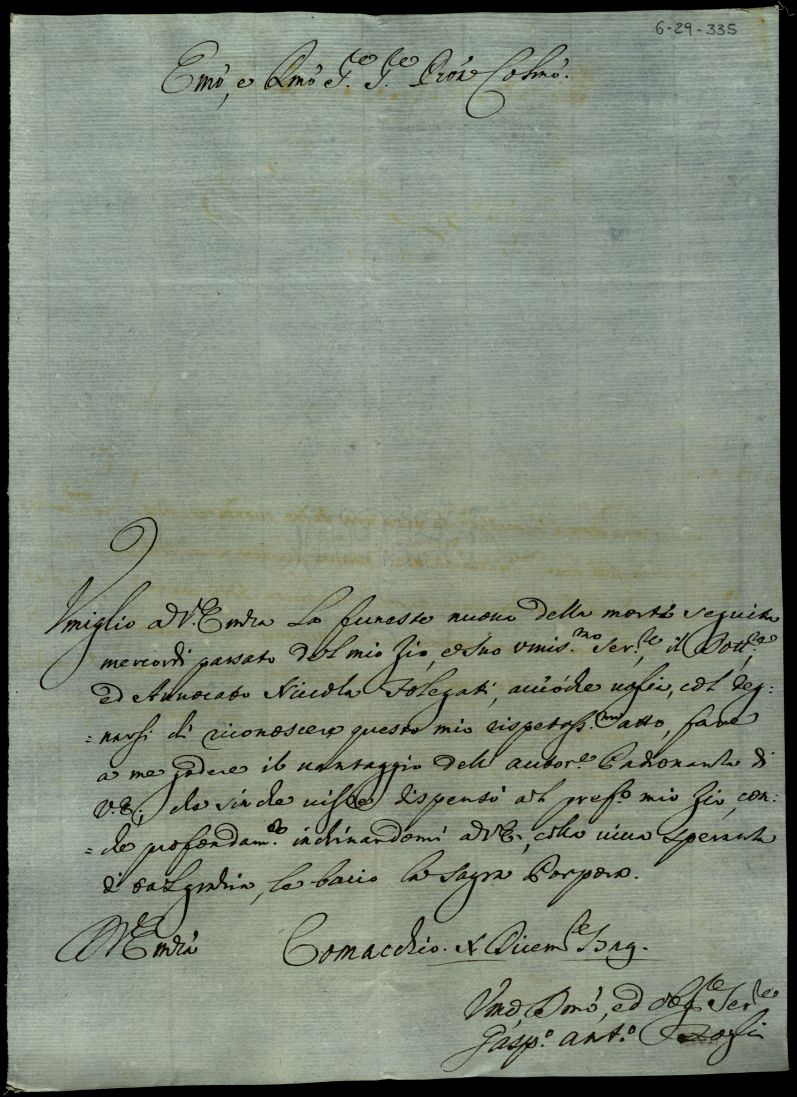 6-29-335
Emo, e Rmo Sre Sre Prone Colmo.
Umiglio a V. Emza la funesta nuova della morte seguita
mercordì passato del mio Zio, e suo umiss.mo Ser.re il Dott.re
ed Avvocato Niccola Folegati, acciòche voglia, col deg:
=narsi di riconoscere questo mio rispetoss.mo atto, fare
a me godere il vantaggio dell' autor.e Padronanza di
V.E., che sinche visse dispensò al pref.o mio Zio, con:
=che profondam.te inchinandomi a V.E., colla viva speranza
di tal grazia, le bacio la Sagra Porpora.
Di V. Emza Comacchio. X Dicem.re
Umo Dmo, ed obg.mo Ser.re
Gasp.o Ant.o